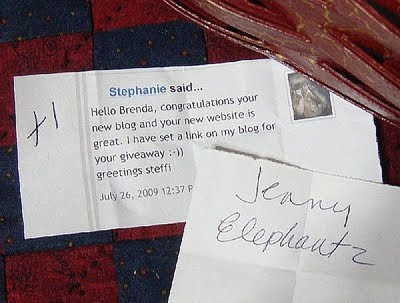 Stephanie said...
Hello Brenda, congratulations your
new blog and your new website is
great. I have set a link on my blog for
your giveaway :-))
greetings steffi
July 26, 2009 12:37 P
Jenny
Elephantz